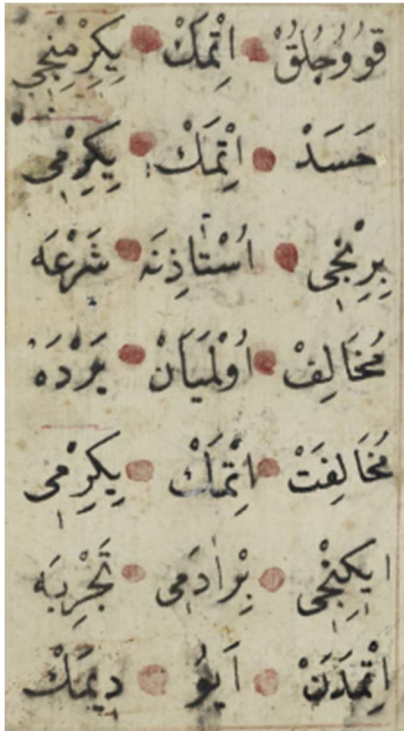 قوُوُجُلُقْ اِتْمَكْ يِكِرْمِنْجِى
حَسَدْ اِتْمَكْ يِكِرْمِى
بِرِنْجِى اُسْتَاذِنَه شَرْعَه
مُخَالِفْ اُولْمَيَانْ يَرْدَهْ
مُخَالِفَتْ اِتْمَكْ يِكِرْمِى
اِيكِنْجِى بِرْ اٰدَمِى تَجْرِبَه
اِتْمَدَنْ اَيُو دِيمَكْ